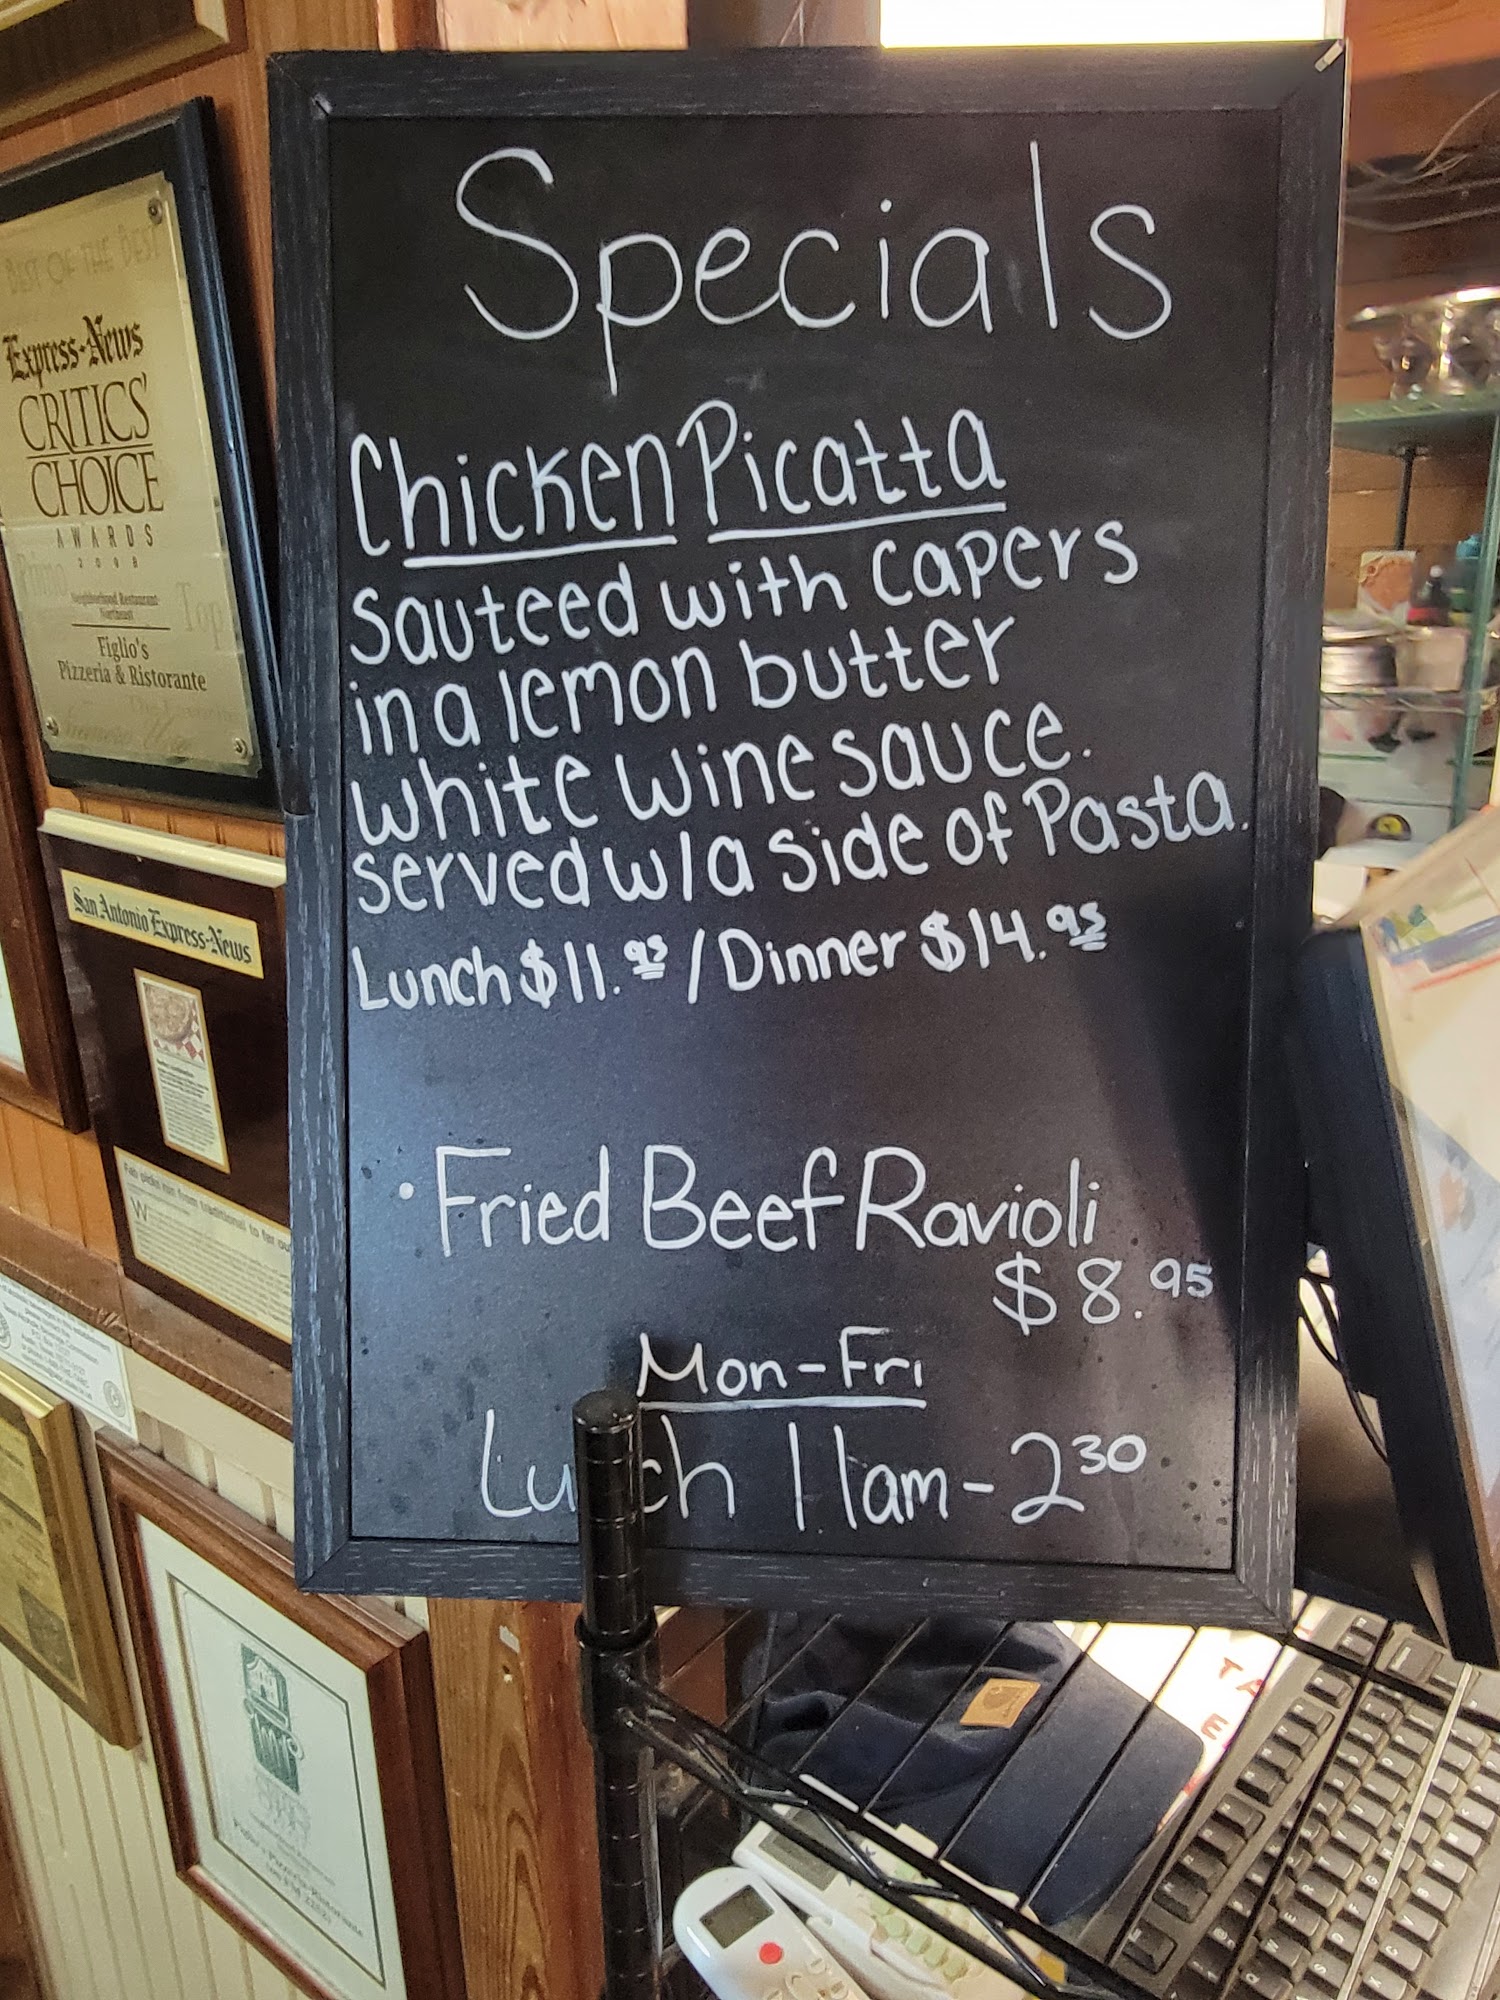 Specials
Chicken Picatta
Sauteed with capers
in a lemon butter
white wine sauce.
served w/a side of Pasta.
Lunch $11.95 / Dinner $14.95
• Fried Beef Ravioli
$8.95
Mon-Fri
Lunch 11am-2 30
BEST OF THE BEST
Express-News
CRITICS'
CHOICE
AWARDS
2008
Neighborhood Restaurant
Northeast
Figlio's
Pizzeria & Ristorante
San Antonio Express-News
Fab picks run from traditional to far ou
TA
E